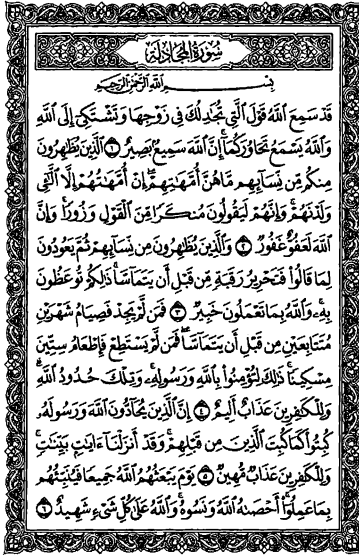 سُورَةُ المُجَادلَة
بِسْمِ اللَّهِ الرَّحْمَٰنِ الرَّحِيمِ
قَدْ سَمِعَ اللَّهُ قَوْلَ الَّتِي تُجَادِلُكَ فِي زَوْجِهَا وَتَشْتَكِي إِلَى اللَّهِ
وَاللَّهُ يَسْمَعُ تَحَاوُرَكُمَا إِنَّ اللَّهَ سَمِيعٌ بَصِيرٌ ١ الَّذِينَ يُظَاهِرُونَ
مِنكُم مِّن نِّسَائِهِم مَّا هُنَّ أُمَّهَاتِهِمْ إِنْ أُمَّهَاتُهُمْ إِلَّا اللَّائِي
وَلَدْنَهُمْ وَإِنَّهُمْ لَيَقُولُونَ مُنكَرًا مِّنَ الْقَوْلِ وَزُورًا وَإِنَّ
اللَّهَ لَعَفُوٌّ غَفُورٌ ٢ وَالَّذِينَ يُظَاهِرُونَ مِن نِّسَائِهِمْ ثُمَّ يَعُودُونَ
لِمَا قَالُوا فَتَحْرِيرُ رَقَبَةٍ مِّن قَبْلِ أَن يَتَمَاسَّا ذَٰلِكُمْ تُوعَظُونَ
بِهِ وَاللَّهُ بِمَا تَعْمَلُونَ خَبِيرٌ ٣ فَمَن لَّمْ يَجِدْ فَصِيَامُ شَهْرَيْنِ
مُتَتَابِعَيْنِ مِن قَبْلِ أَن يَتَمَاسَّا فَمَن لَّمْ يَسْتَطِعْ فَإِطْعَامُ سِتِّينَ
مِسْكِينًا ذَٰلِكَ لِتُؤْمِنُوا بِاللَّهِ وَرَسُولِهِ وَتِلْكَ حُدُودُ اللَّهِ
وَلِلْكَافِرِينَ عَذَابٌ أَلِيمٌ ٤ إِنَّ الَّذِينَ يُحَادُّونَ اللَّهَ وَرَسُولَهُ
كُبِتُوا كَمَا كُبِتَ الَّذِينَ مِن قَبْلِهِمْ وَقَدْ أَنزَلْنَا آيَاتٍ بَيِّنَاتٍ
وَلِلْكَافِرِينَ عَذَابٌ مُّهِينٌ ٥ يَوْمَ يَبْعَثُهُمُ اللَّهُ جَمِيعًا فَيُنَبِّئُهُم
بِمَا عَمِلُوا أَحْصَاهُ اللَّهُ وَنَسُوهُ وَاللَّهُ عَلَىٰ كُلِّ شَيْءٍ شَهِيدٌ ٦